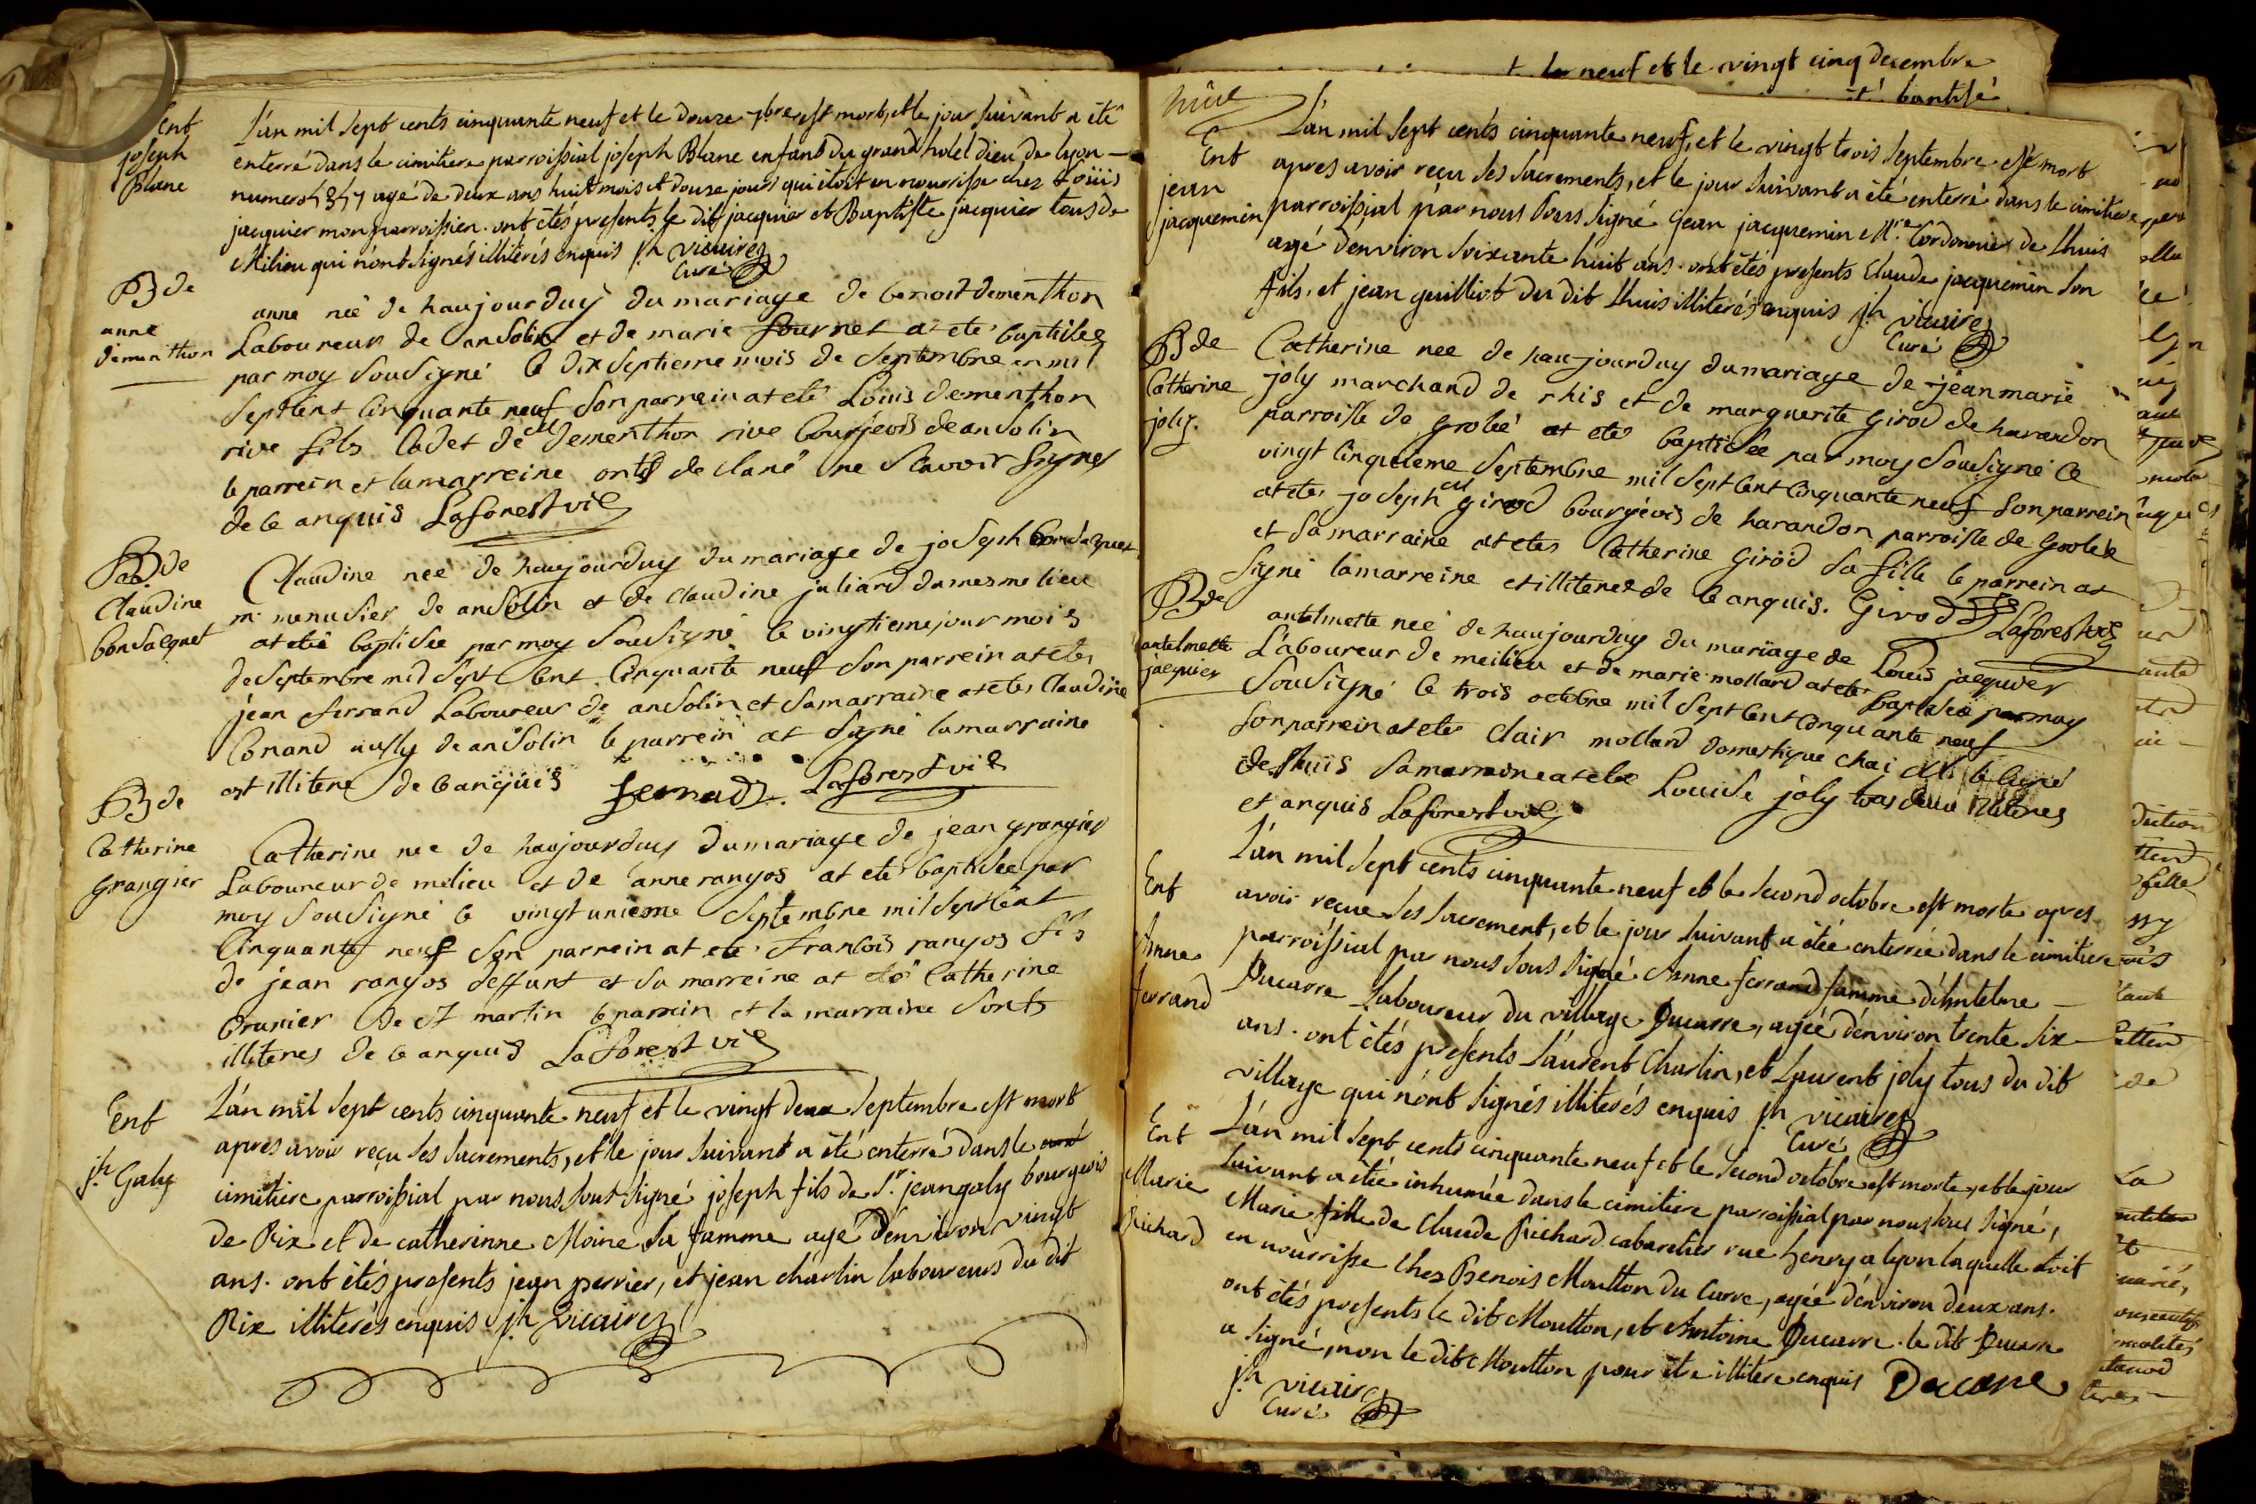 Ent
joseph
Blanc
L'an mil sept cents cinquante neuf et le douze 7bre est mort, et le jour suivant a été
enterré dans le cimitiere parroissial joseph Blanc enfant du grand hotel dieu de lyon
numero agé de deux ans huit mois et douze jours qui étoit en nourrisse chez Loüis
jacquier mon parroissien. ont étés presents le dit jacquier et Baptiste jacquier tous de
Milieu qui n'ont signés illiterés enquis jh vicaire
Curé
B de
anne
dementhon
anne neé de haujourduy du mariage de benoit dementhon
Laboureur de ansolin et de marie fournet at eté baptisée
par moy Sousigné le dix septieme mois de Septembre en mil
Septcent Cinquante neuf Son parrein at eté Loüis dementhon
rive fils Cadet de dementhon rive bourjeois de ansolin
le parrein et la marreine onts de claré ne Scavoir Signer
de ce anquis Laforest vic
B de
Claudine
bonsaquet
Claudine neé de haujourduy du mariage de joseph
m. menusier de ansolin et de claudine juliard du mesme lieu
at eteé baptisée par moy Sousigné le vingtieme jour mois
de Septembre mil Sept Cent Cinquante neuf Son parrein at ete
jean ferrand Laboureur de ansolin et Sa marraine at ete Claudine
Conand aussy de ansolin le parrein at Signé la marraine
est illitere de ce anquis ferrand. Laforest vic
B de
Catherine
grangier
Catherine neé de haujourduy du mariage de jean grangier
Laboureur de milieu et de anne ranyos at eté baptisée par
moy Sousigné le vingt unieme Septembre mil Septcent
Cinquante neuf Son parrein at eté francois ranyos fils
de jean ranyos deffunt et Sa marreine at eté Catherine
brunier de St martin le parrein et la marraine Sonts
illiteres de ce anquis Laforest vic
Ent
jh Galy
L'an mil sept cents cinquante neuf et le vingt deux septembre est mort
apres avoir reçu ses sacrements, et le jour suivant a été enterré dans le
cimitiere parroissial par nous sous signé joseph fils de Sr jean galy bourgeois
de Rix et de catherinne Moine sa famme agé d'environ vingt
ans. ont étés presents jean perrier, et jean charlin laboureurs du dit
Rix illiterés enquis jh Vicaire
t le neuf et le vingt cinq decembre
été baptisé
Ent
jean
jacquemin
L'an mil sept cents cinquante neuf, et le vingt trois septembre est mort
apres avoir reçu ses sacrements, et le jour suivant a été enterré dans le cimitiere
parroissial par nous sous signé jean jacquemin Mre Cordonnier de Lhuis
agé d'environ soixante huit ans. ont étés presents Claude jacquemin son
fils, et jean guilliot du dit Lhuis illiterés enquis jh vicaire
Curé
B de
Catherine
joly.
Catherine neé de haujourduy du mariage de jean marie
joly marchand de rhis et de marguerite girod de harandon
parroisse de groleé at eté baptisée par moy Sousigné le
vingt Cinquieme Septembre mil Sept Cent Cinquante neuf Son parrein
at ete joseph girod bourgéois de harandon parroisse de groleé
et Sa marraine at ete Catherine Giröd Sa fille le parrein at
Signé la marreine et illiteres de ce anquis. Girod Laforest vic
B de
antelmette
jacquier
antelmette neé de haujourduy du mariäge de Loüis jacquier
Laboureur de meilieu et de marie mollard at ete baptiseé par moy
Sousigné le trois octobre mil Sept Cent Cinquante neuf
Son parrein at ete Clair mollard domestique chai
de Lhuis Sa marraine at ete Louise joly tous deux illiteres
et anquis Laforest vic
Ent
Anne
ferrand
L'an mil sept cents cinquante neuf et le second octobre est morte apres
avoir reçue ses sacrement, et le jour suivant a étée enterrée dans le cimitiere
parroissial par nous sous signé Anne ferrand famme d'Antelme
Ducarre laboureur du village Ducarre, agée d'environ trente six
ans. ont étés presents Laurent Charlin, et Laurent joly tous du dit
village qui n'ont signés illiterés enquis jh vicaire
Curé
Ent
Marie
Richard
L'an mil sept cents cinquante neuf et le second octobre est morte, et le jour
suivant a étée inhumée dans le cimitiere parroissial par nous sous signé,
Marie fille de Claude Richard cabaretier rue henry a lyon laquelle etoit
en nourrisse Chez Benois Moutton du Carre, agée d'environ deux ans.
ont étés presents le dit Moutton, et Antoine Ducarre. le dit Ducarre
a signé, non le dit Moutton pour etre illitere enquis Ducarre
jh vicaire
Curé